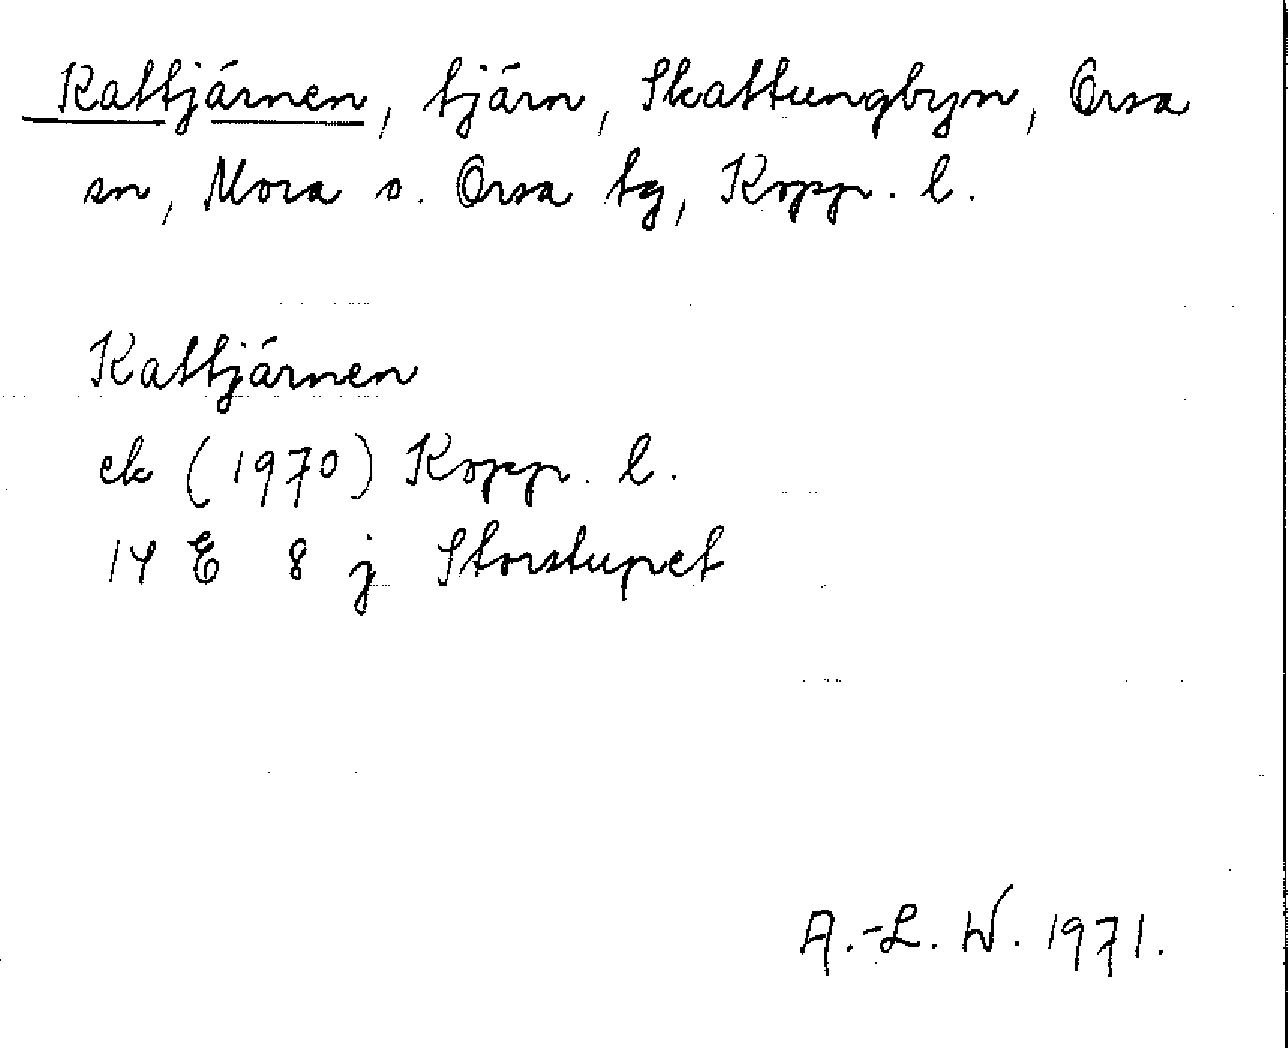 Kattjärnen, tjärn, Skattungbyn, Orsa
sn, Mora o. Orsa tg, Kopp. l.
Kattjärnen
ek (1970) Kopp. l.
14 E 8 j Storstupet
A.-L. W. 1971.